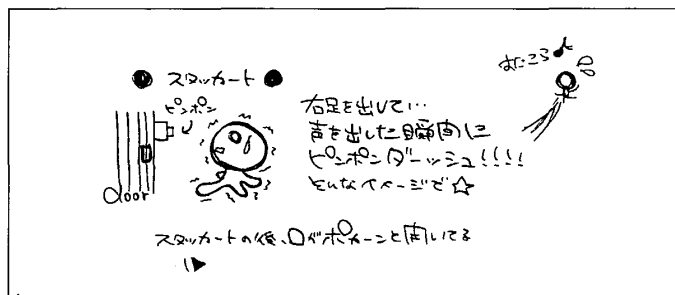 スタッカート
ピンポン
door
右足を出して…
声を出した瞬間に
ピンポンダーッシュ!!!!
そんなイメージで☆
スタッカートの後、口がポカーンと開いてる